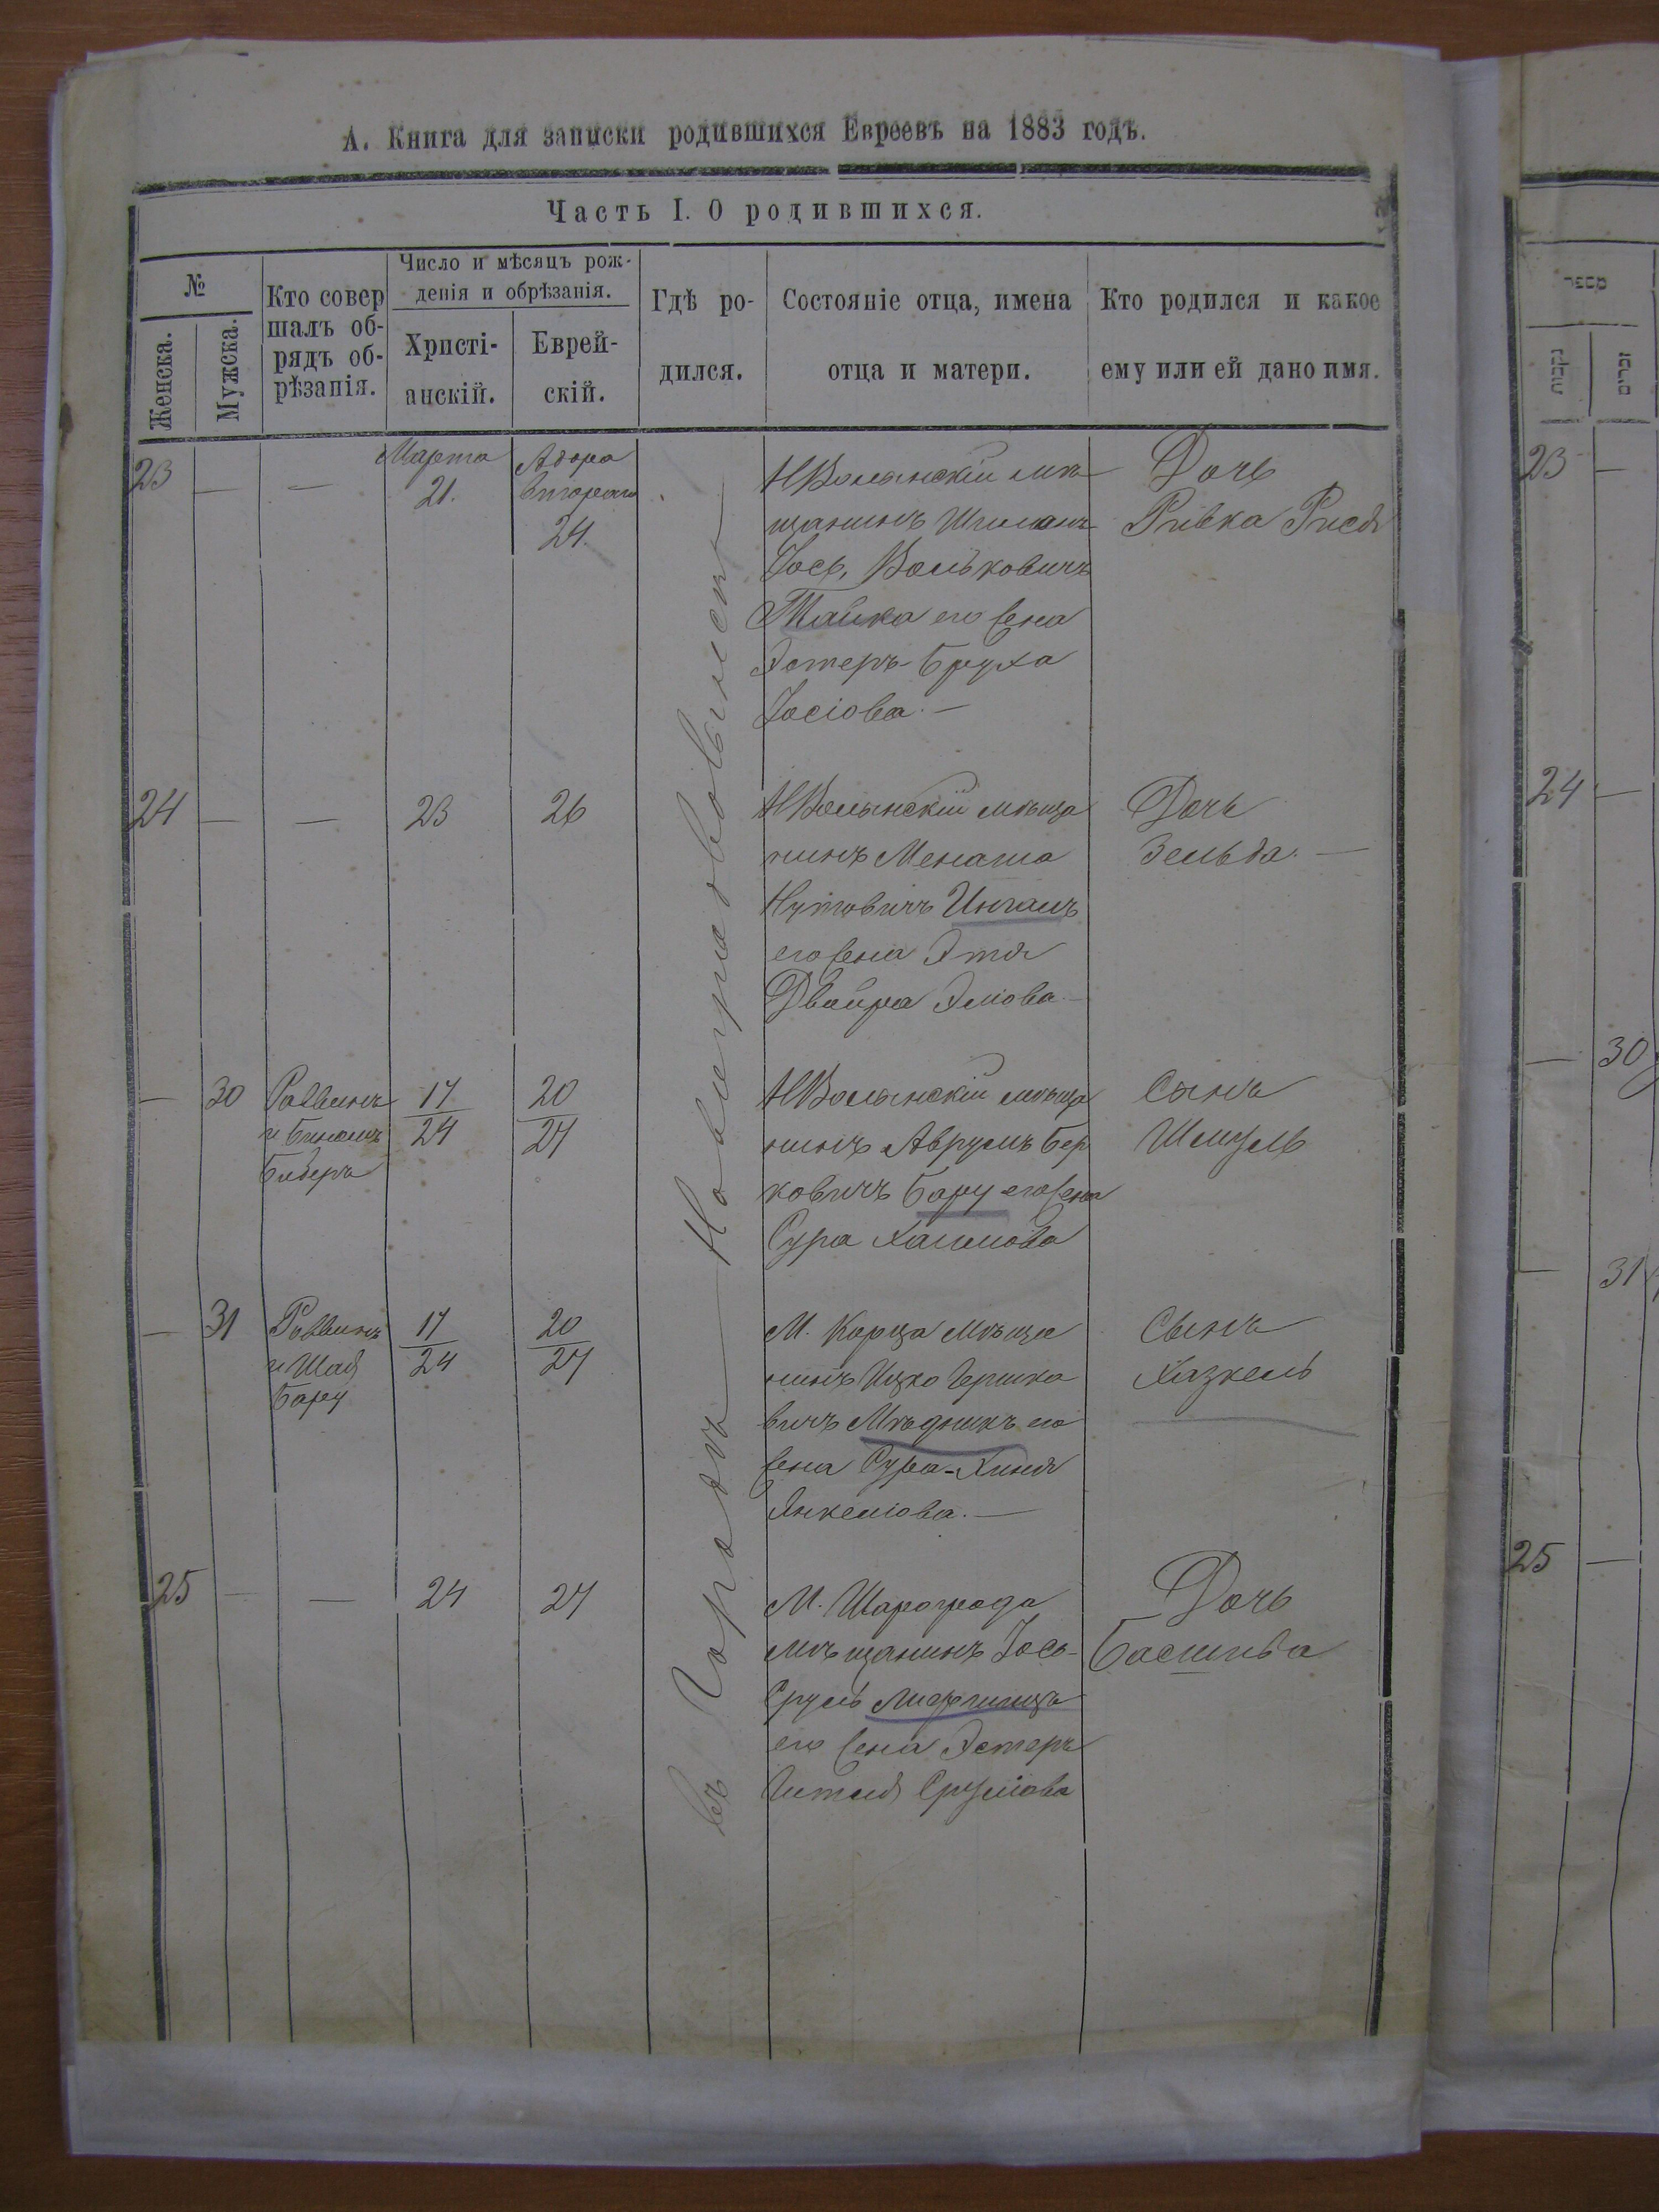 А. Книга для записки родившихся Евреевъ на 1883 годъ.
Часть I. О родившихся.
№
Женска.
Мужска.
Кто совер
шалъ об-
рядъ об-
рѣзанія.
Число и мѣсяцъ рож-
денія и обрѣзанія.
Христі-
анскій.
Еврей-
скій.
Гдѣ ро-
дился.
Состояніе отца, имена
отца и матери.
Кто родился и какое
ему или ей дано имя.
въ Городѣ Новоградволынскѣ
23
—
—
Марта
21.
Адора
втораго
24.
НВолынскій мѣ
щанинъ
Іось, Вольковичъ
Тайка его жена
Эстеръ-Бруха
Іосіова. —
Дочь
Ривка Рися
24
—
—
23
26
НВолынскій мѣща
нинъ Менаша
Нутовичъ
его жена Этя
Двойра Эліова. —
Дочь
Зельда. —
—
30
Раввинъ
и Биномъ
17
24
20
27
НВолынскій мѣща
нинъ Аврумъ Бер
ковичъ Бару его жена
Сура Хаимова
Сынъ
Шмуль
—
31
Раввинъ
и Шая
Бару
17
24
20
27
М. Корца мѣща
нинъ Ицко Гершко
вичъ Мѣдникъ его
жена Сура-Хиня
Янкеліова. —
Сынъ
Хазкель
25
—
—
24
27
М. Шарограда
мѣщанинъ Іось-
Сруль
его жена Эстеръ
Гитля Сруліова
Дочь
Басшива
מספר
נקבות
זכרים
23
—
24
—
—
30
—
31
25
—